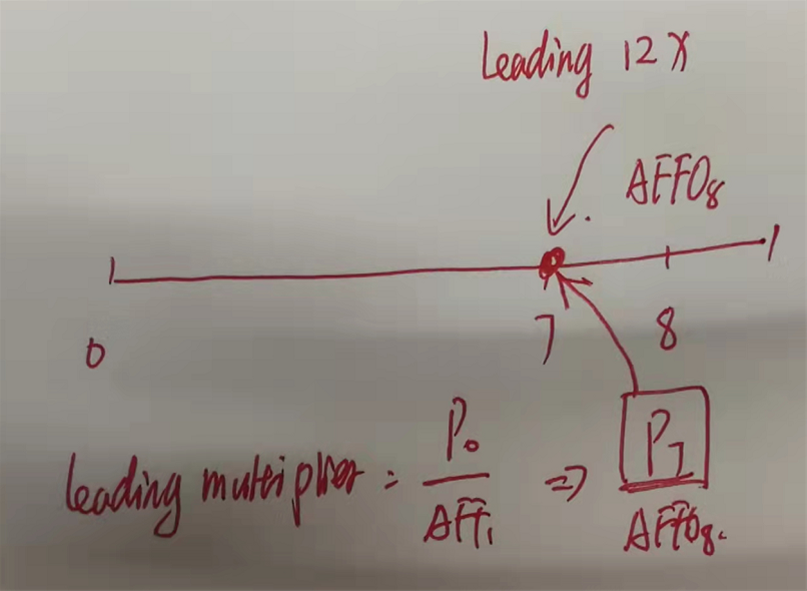 Leading 12X
AFFO8
7 8
0
leading multiplier = P0 / AFF1 => P7 / AFFO8.